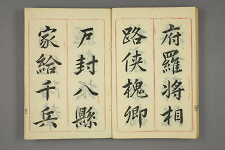 府羅将相
路俠槐卿
戸封八縣
家給千兵